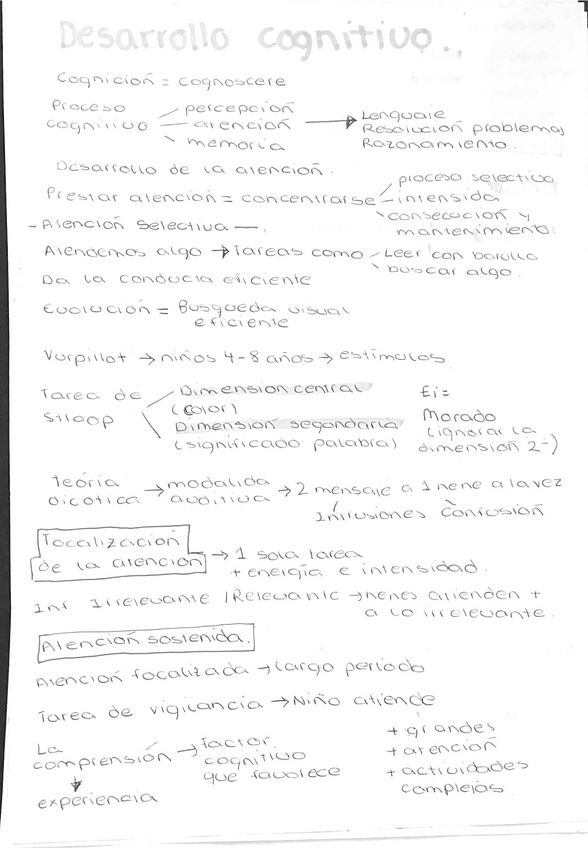 Desarrollo cognitivo..
Cognición = cognoscere
Proceso cognitivo
percepción
atención
memoria
Lenguaje
Resolución problemas
Razonamiento.
Desarrollo de la atención.
Prestar atención = concentrarse
proceso selectivo
intensida
consecución y
mantenimiento
- Atención selectiva —.
Atendemos algo → Tareas como
Leer con barullo
buscar algo.
Da la conducta eficiente
Evolución = Busqueda visual
eficiente
Vurpillot → niños 4-8 años → estímulos
Tarea de
Stroop
Dimension central
(color)
Dimension segondaria
(significado palabra)
Ej=
Morado
(ignorar la
dimensión 2-)
teoría
dicotica → modalida
auditiva → 2 mensaje a 1 nene a la vez
Intrusiones confusión
Focalización
de la atención → 1 sola tarea
+ energía e intensidad.
Inf Irrelevante / Relevante → nenes atienden +
a lo irrelevante.
Atención sostenida.
Atención focalizada → largo período
Tarea de vigilancia → Niño atiende
La
comprensión → factor
cognitivo
que favorece
experiencia
+ grandes
+ atención
+ actividades
complejas.